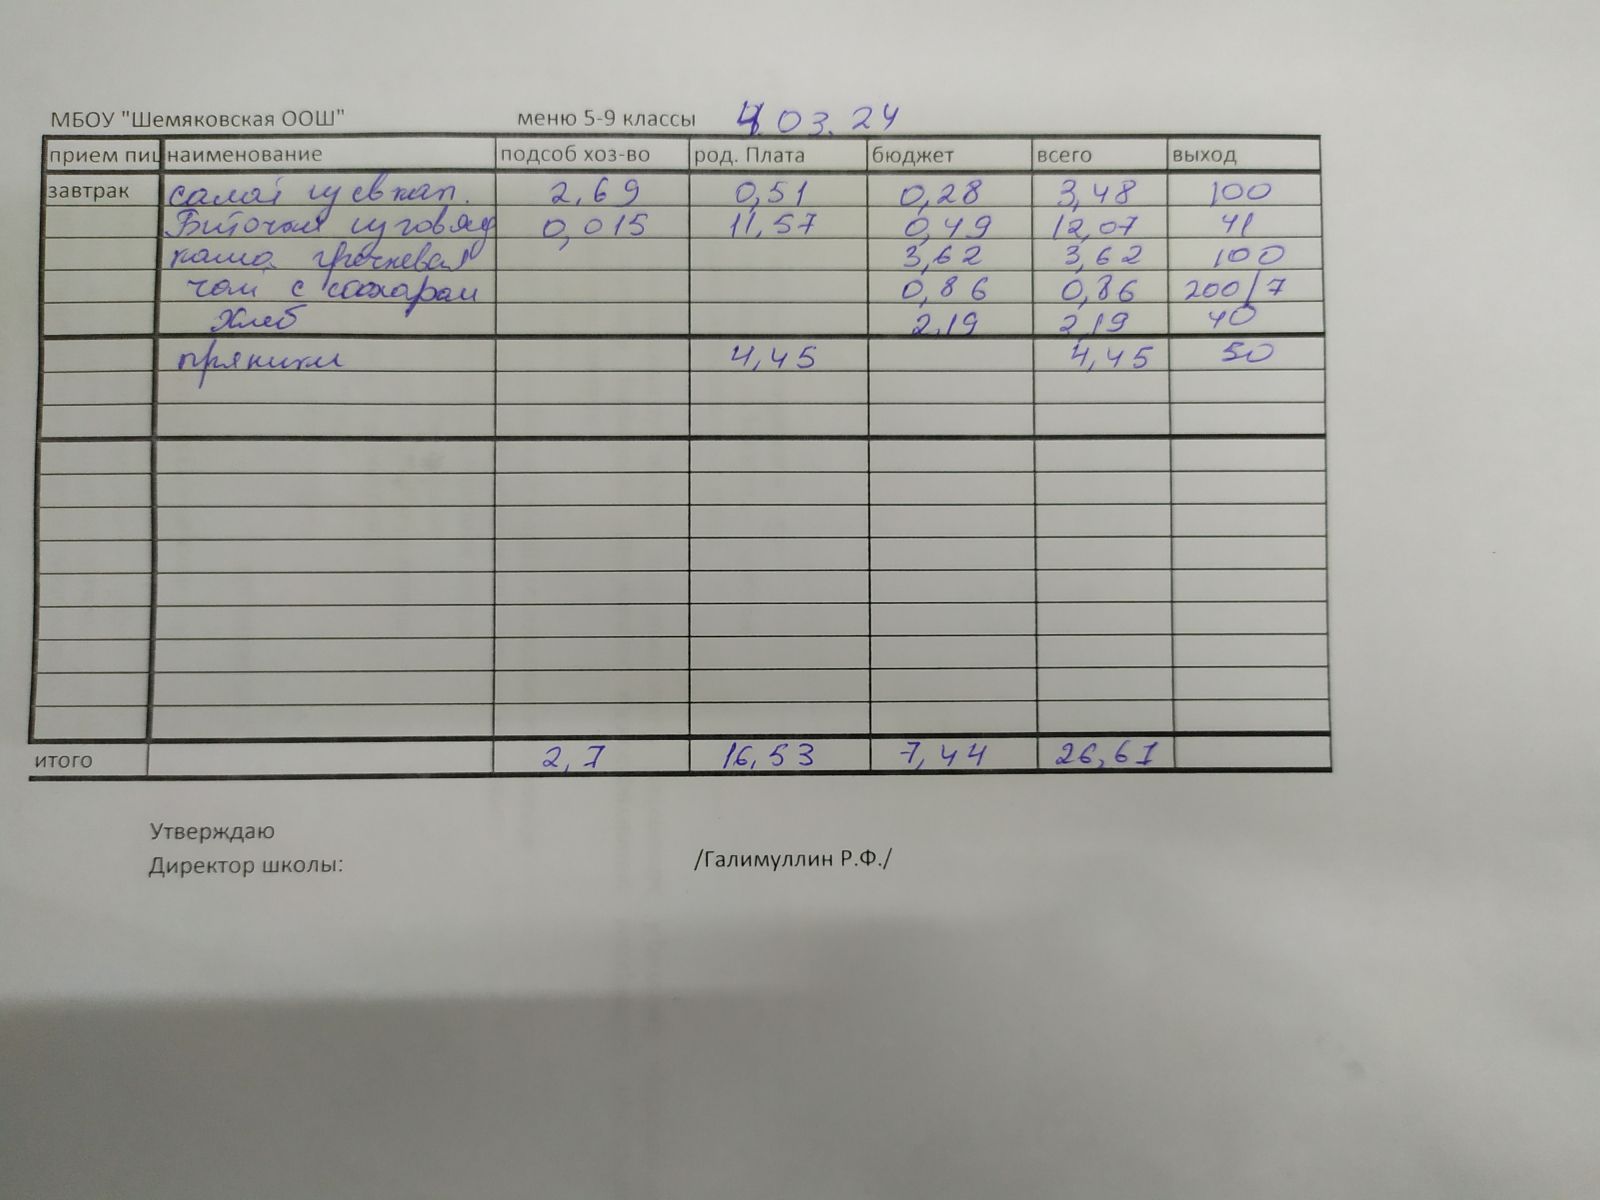 МБОУ "Шемяковская ООШ" меню 5-9 классы 4.03.24
прием пищ наименование подсоб хоз-во род. Плата бюджет всего выход
завтрак салат из св кап. 2,69 0,51 0,28 3,48 100
Биточки из говяд 0,015 11,57 0,49 12,07 41
каша гречневая 3,62 3,62 100
чай с сахаром 0,86 0,86 200/7
Хлеб 2,19 2,19 40
пряники 4,45 4,45 50
итого 2,7 16,53 7,44 26,67
Утверждаю
Директор школы: /Галимуллин Р.Ф./